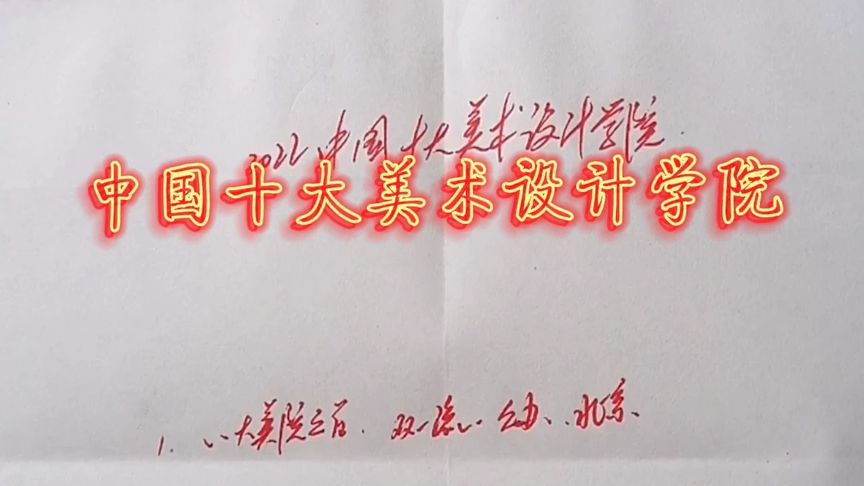 2022中国十大美术设计学院.
中国十大美术设计学院
1、八大美院之首、双一流、公办、北京、